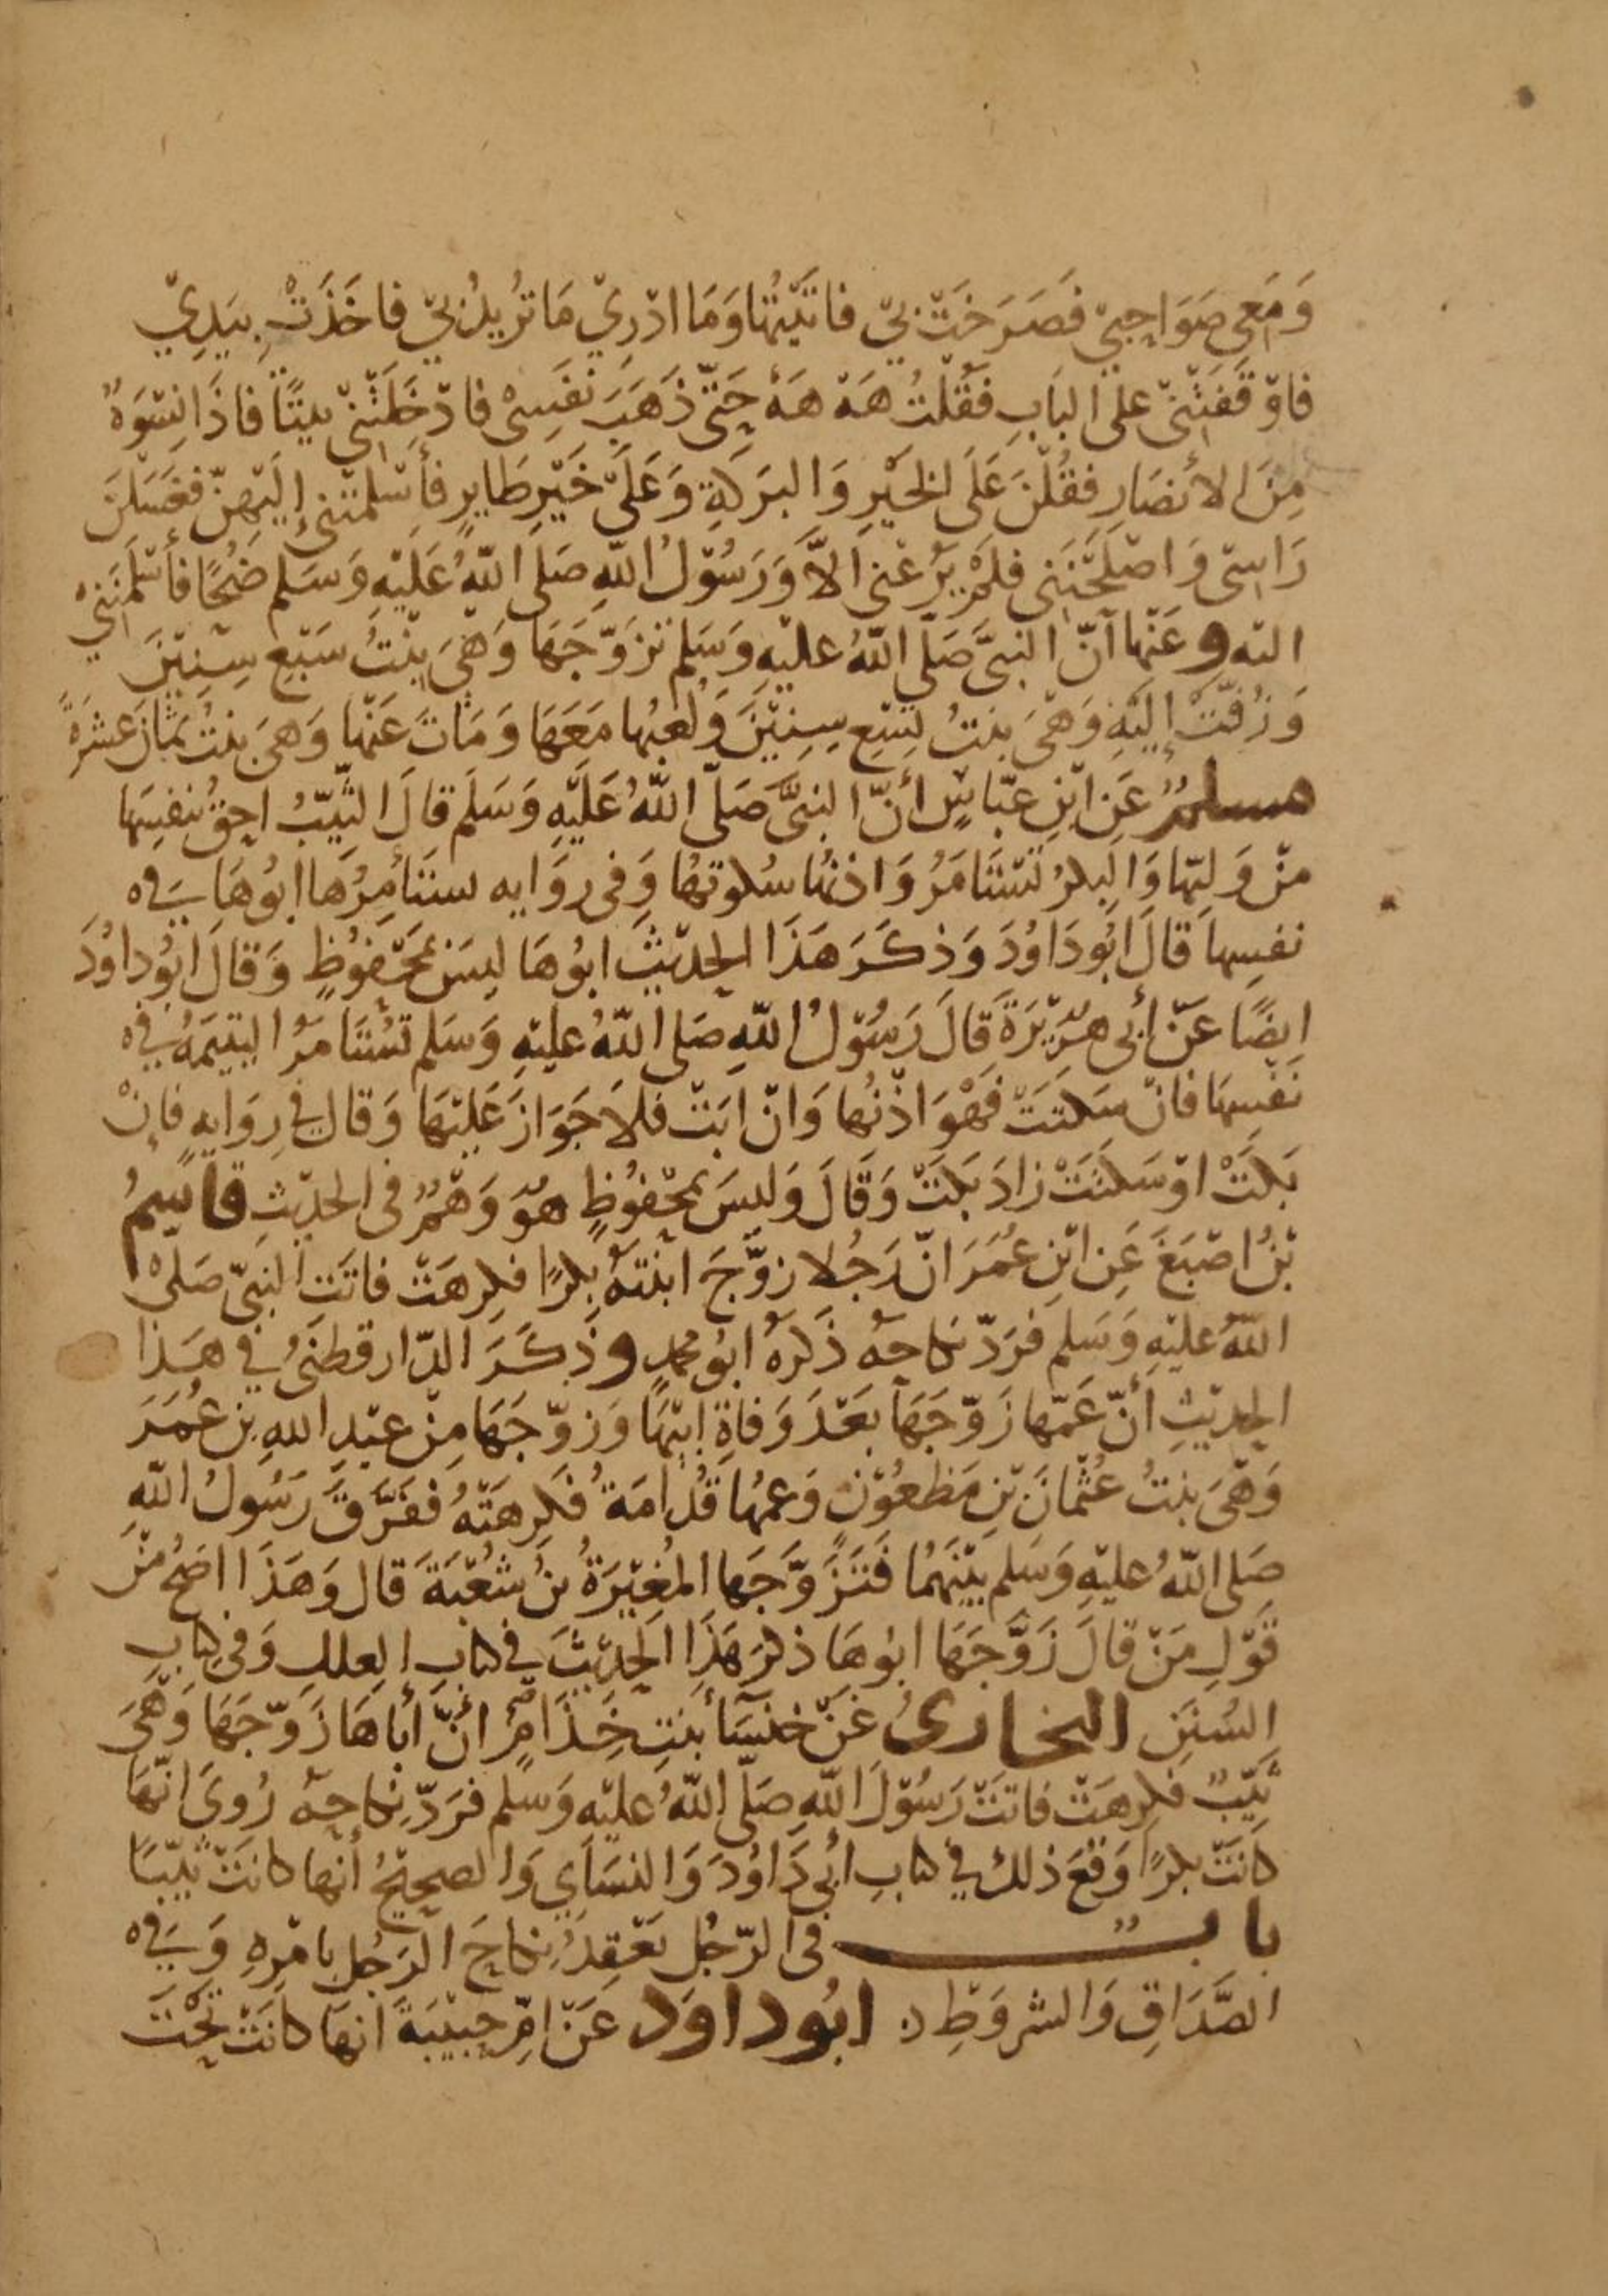 وَمَعِي صَوَاحِبِيْ فَصَرَخَتْ بِيْ فاتَيْتُهَا وَمَا ادْرِيْ مَا تُرِيدُ بِيْ فاخَذَتْ بِيَدِيْ
فاوْقَفَتْنِيْ على البَابِ فقُلْتُ هَهْ هَهْ حَتّى ذَهَبَ نَفَسِيْ فادْخَلَتْنِيْ بيتًا فاذَا نِسْوَةٌ
مِنَ الأنصَارِ فقُلْنَ عَلَى الخَيْرِ وَالبَرَكَةِ وَعَلَى خَيْرِ طَايِرٍ فأسْلَمَتْنِي إلَيْهِنّ فغَسَلنَ
رَاسِي وَاصْلَحْنَنِي فلَمْ يَرُعْنِي الاَّ وَرَسُوْلُ اللّهِ صَلى اللّهُ عَلَيْهِ وَسَلم ضُحًا فأسْلَمْنَنِيْ
اليْه وعَنْها أنّ النبىَّ صَلّى اللّهُ عليْهِ وَسَلم تزَوّجَهَا وَهْيَ بِنْتُ سَبْعِ سِنِيْنَ
وَزُفّتْ إليْهِ وَهْيَ بنتُ تِسْعِ سِنِيْنَ وَلُعَبُها مَعَهَا وَمَاتَ عَنْها وَهيَ بنتُ ثمَانَ عَشَرَةَ
مسلمٌ عَنِ ابْنِ عبّاسٍ أنّ النبىَّ صَلّى اللّهُ عَلَيْهِ وَسَلَم قالَ الثيّبُ احقُّ بنفسِهَا
مِنْ وَليّها وَالبِكرُ تُسْتَامَرُ وَاذنُهَا سُكوتهُا وَفى روَايه يستَأمِرُهَا ابُوهَا فِي
نفسِهاَ قالَ ابُو دَاوُدَ وَذِكَرَ هَذَا الحدِيْثَ ابُوهَا ليسَ بمَحْفُوظٍ وَقالَ ابُو داوُدَ
ايضًا عَنْ أبى هرَيْرَةَ قَالَ رَسُوْلُ اللّهِ صَلى اللّهُ عليْهِ وَسَلم تُسْتَامَرُ اليَتيمَةُ فِي
نَفْسِهَا فانْ سَكتَتْ فَهْوَ اذْنُها وَانْ ابَتْ فلاَ جَوَازَ عَليْهَا وَقال في رِوَايهٍ فإنْ
بَكَتْ اوْ سَكتَتْ زادَ بَكَتْ وَقَالَ وَليسَ بمَحْفُوظٍ هوَ وَهْمٌ فى الحدِيْثِ قاسِمُ
بْنُ اصْبَغَ عَنِ ابْنِ عُمَرَ انّ رَجُلا زوَّجَ ابنتَهُ بِكْرًا فكِرِهَتْ فاتَتِ النبِىّ صَلىْ
اللّهُ عليْهِ وَسَلم فرَدّ نكاحَهُ ذكَرَهُ ابُو محمدٍ وذكَرَ الدّارقطنِيُّ في هَذا
الحدِيْثِ أنّ عَمّها زَوّجَهَا بَعْدَ وَفاةِ ابيْهَا وَزوّجَهَا مِنْ عبْدِ اللهِ بْنِ عُمَرَ
وَهْيَ بنتُ عُثْمانَ بْنِ مَظْعُوْنٍ وَعمُّهَا قُدَامَةُ فكَرِهَتْهُ ففَرَّقَ رَسُولُ اللّهِ
صَلى اللّهُ عليْهِ وَسَلم بيْنَهُمَا فَتَزَوَّجَها المُغيْرَةُ بنُ شُعْبَةَ قال وَهَذَا اصَحُّ مِنْ
قوْلِ مَنْ قالَ زَوَّجَهَا ابُوهَا ذكرَ هَذَا الحَدِيْثَ في كتابِ العِلَلِ وَفي كتابِ
السُنَنِ البخارىُّ عَنْ خنسَآ بنتِ خِذَامٍ أنّ أباهَا زَوّجَهَا وَهْيَ
ثَيّبٌ فكِرِهَتْ فاتَتْ رَسُوْلَ اللّهِ صَلّى اللّهُ عليْه وَسَلم فرَدّ نِكاحَهُ رُوىَ انّهَا
كانَتْ بكرًا وَقعَ ذلك في كتابِ أبى دَاوُدَ وَالنسَاَيِ وَالصحِيْحُ أنها كانَتْ ثيّبًا
بابٌ فى الرّجُلِ يَعْقِدُ نِكاحَ الرَجُلِ بامْرِهِ وَفِي
الصَّدَاقِ وَالشروْطِ د ابُو داوَد عَنْ امّ حبيْبَةَ انهَا كانَتْ تحْتَ